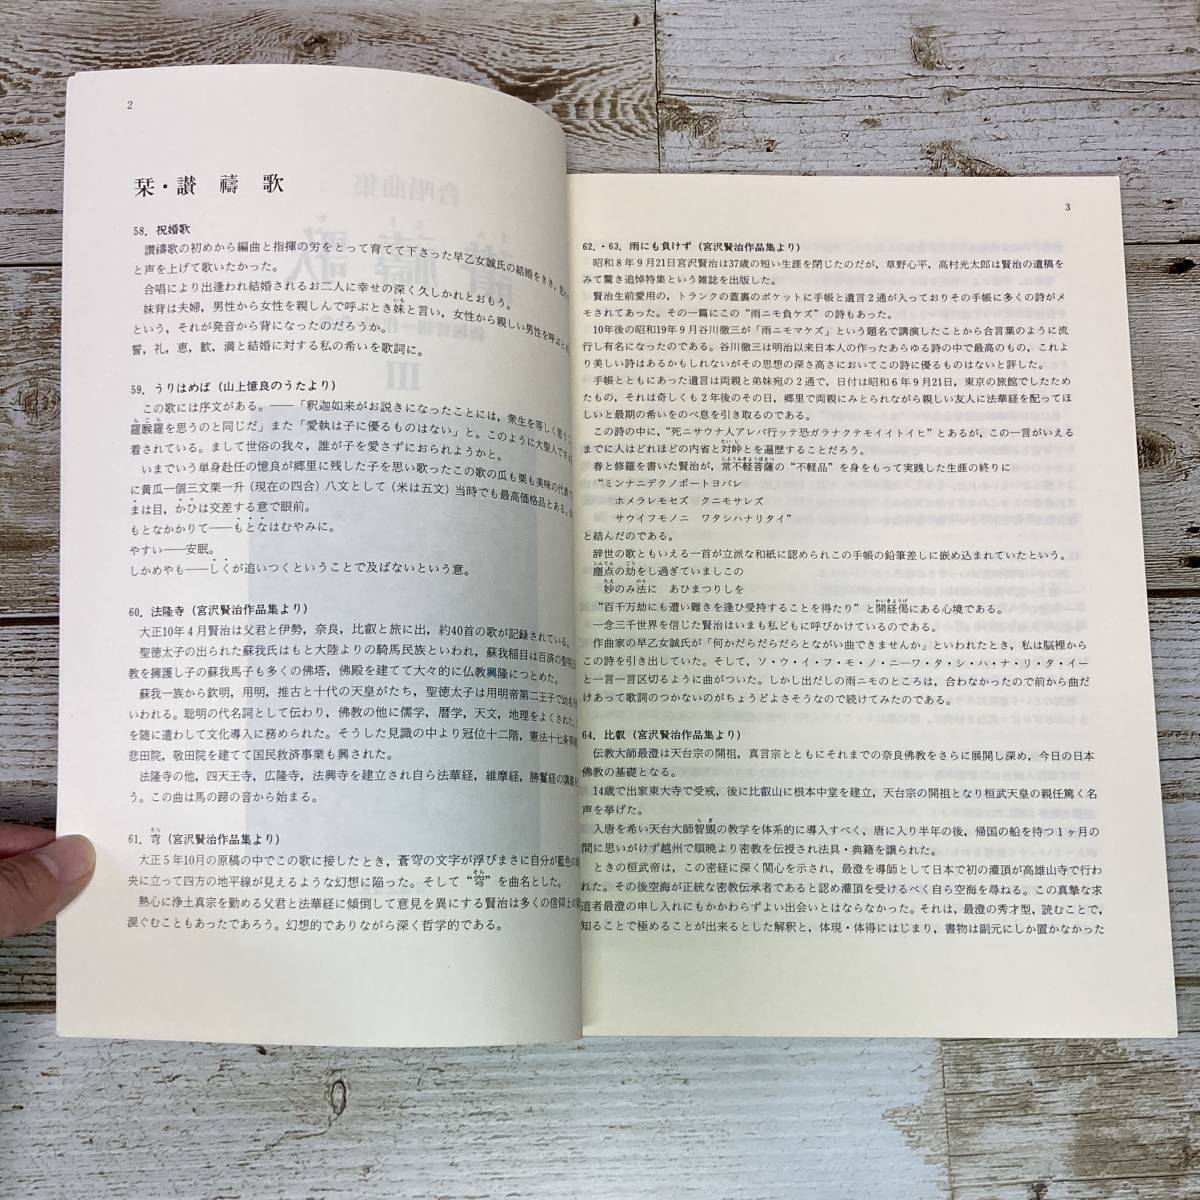 2
栞・讃 禱 歌
58. 祝婚歌
讃禱歌の初めから編曲と指揮の労をとって育てて下さった早乙女誠氏の結婚をきき,
と声を上げて歌いたかった。
合唱により出逢われ結婚されるお二人に幸せの深く久しかれとおもう。
妹背は夫婦, 男性から女性を親しんで呼ぶとき妹と言い, 女性から親しい男性を呼ぶとき
という, それが発音から背になったのだろうか。
誓, 礼, 恵, 歓, 満と結婚に対する私の希いを歌詞に。
59. うりはめば (山上憶良のうたより)
この歌には序文がある。――「釈迦如来がお説きになったことには, 衆生を等しく思うこ
羅睺羅を思うのと同じだ」また「愛執は子に優るものはない」と。このように大聖人で
着されている。まして世俗の我々, 誰が子を愛さずにおられようかと。
いまでいう単身赴任の憶良が郷里に残した子を思い歌ったこの歌の瓜も栗も美味の代表
に黄瓜一個三文栗一升 (現在の四合) 八文として (米は五文) 当時でも最高価格品とある。
まは目, かひは交差する意で眼前。
もとなかかりて――もとなはむやみに。
やすい――安眠。
しかめやも――しくが追いつくということで及ばないという意。
60. 法隆寺 (宮沢賢治作品集より)
大正10年4月賢治は父君と伊勢, 奈良, 比叡と旅に出, 約40首の歌が記録されている。
聖徳太子の出られた蘇我氏はもと大陸よりの騎馬民族といわれ, 蘇我稲目は百済の聖明
教を擁護し子の蘇我馬子も多くの佛塔, 佛殿を建てて大々的に仏教興隆につとめた。
蘇我一族から欽明, 用明, 推古と十代の天皇がたち, 聖徳太子は用明帝第二王子で幼名
いわれる。聡明の代名詞として伝わり, 佛教の他に儒学, 暦学, 天文, 地理をよくされた。
を随に遣わして文化導入に務められた。そうした見識の中より冠位十二階, 憲法十七条
悲田院, 敬田院を建てて国民救済事業も興された。
法隆寺の他, 四天王寺, 広隆寺, 法興寺を建立され自ら法華経, 維摩経, 勝鬘経の講義
う。この曲は馬の蹄の音から始まる。
61. 穹 (宮沢賢治作品集より)
そら
大正5年10月の原稿の中でこの歌に接したとき, 蒼穹の文字が浮びまさに自分が藍色の
央に立って四方の地平線が見えるような幻想に陥った。そして“穹”を曲名とした。
熱心に浄土真宗を勤める父君と法華経に傾倒して意見を異にする賢治は多くの信仰上の
涙ぐむこともあったであろう。幻想的でありながら深く哲学的である。
3
62. ・63. 雨にも負けず (宮沢賢治作品集より)
昭和8年9月21日宮沢賢治は37歳の短い生涯を閉じたのだが, 草野心平, 高村光太郎は賢治の遺稿を
みて驚き追悼特集という雑誌を出版した。
賢治生前愛用の, トランクの蓋裏のポケットに手帳と遺言2通が入っておりその手帳に多くの詩がメ
モされてあった。その一篇にこの“雨ニモ負ケズ”の詩もあった。
10年後の昭和19年9月谷川徹三が「雨ニモマケズ」という題名で講演したことから合言葉のように流
行し有名になったのである。谷川徹三は明治以来日本人の作ったあらゆる詩の中で最高のもの, これよ
り美しい詩はあるかもしれないがその思想の深さ高さにおいてこの詩に優るものはないと評した。
手帳とともにあった遺言は両親と弟妹宛の2通で, 日付は昭和6年9月21日, 東京の旅館でしたため
たもの, それは奇しくも2年後のその日, 郷里で両親にみとられながら親しい友人に法華経を配ってほ
しいと最期の希いをのべ息を引き取るのである。
この詩の中に, “死ニサウナ人アレバ行ッテ恐ガラナクテモイイトイヒ”とあるが, この一言がいえる
までに人はどれほどの内省と対峙とを遍歴することだろう。
春と修羅を書いた賢治が, 常不軽菩薩の“不軽品”を身をもって実践した生涯の終りに
“ミンナニデクノボートヨバレ
ホメラレモセズ クニモサレズ
サウイフモノニ ワタシハナリタイ”
と結んだのである。
辞世の歌ともいえる一首が立派な和紙に認められこの手帳の鉛筆差しに嵌め込まれていたという。
塵点の劫をし過ぎていましこの
妙のみ法に あひまつりしを
“百千万劫にも遭い難きを逢ひ受持することを得たり”と開経偈にある心境である。
一念三千世界を信じた賢治はいまも私どもに呼びかけているのである。
作曲家の早乙女誠氏が「何かだらだらだらとながい曲できませんか」といわれたとき, 私は脳裡から
この詩を引き出していた。そして, ソ・ウ・イ・フ・モ・ノ・ニ―ワ・タ・シ・ハ・ナ・リ・タ・イ―
と一言一言区切るように曲がついた。しかし出だしの雨ニモのところは, 合わなかったので前から曲だ
けあって歌詞のつかないのがちょうどよさそうなので続けてみたのである。
64. 比叡 (宮沢賢治作品集より)
伝教大師最澄は天台宗の開祖, 真言宗とともにそれまでの奈良佛教をさらに展開し深め, 今日の日本
佛教の基礎となる。
14歳で出家東大寺で受戒, 後に比叡山に根本中堂を建立, 天台宗の開祖となり桓武天皇の親任篤く名
声を挙げた。
入唐を希い天台大師智顗の教学を体系的に導入すべく, 唐に入り半年の後, 帰国の船を待つ1ヶ月の
間に思いがけず越州で順暁より密教を伝授され法具・典籍を譲られた。
ときの桓武帝は, この密経に深く関心を示され, 最澄を導師として日本で初の灌頂が高雄山寺で行わ
れた。その後空海が正統な密教伝承者であると認め灌頂を受けるべく自ら空海を尋ねる。この真摯な求
道者最澄の申し入れにもかかわらずよい出会いとはならなかった。それは, 最澄の秀才型, 読むことで,
知ることで極めることが出来るとした解釈と, 体現・体得にはじまり, 書物は副元にしか置かなかった